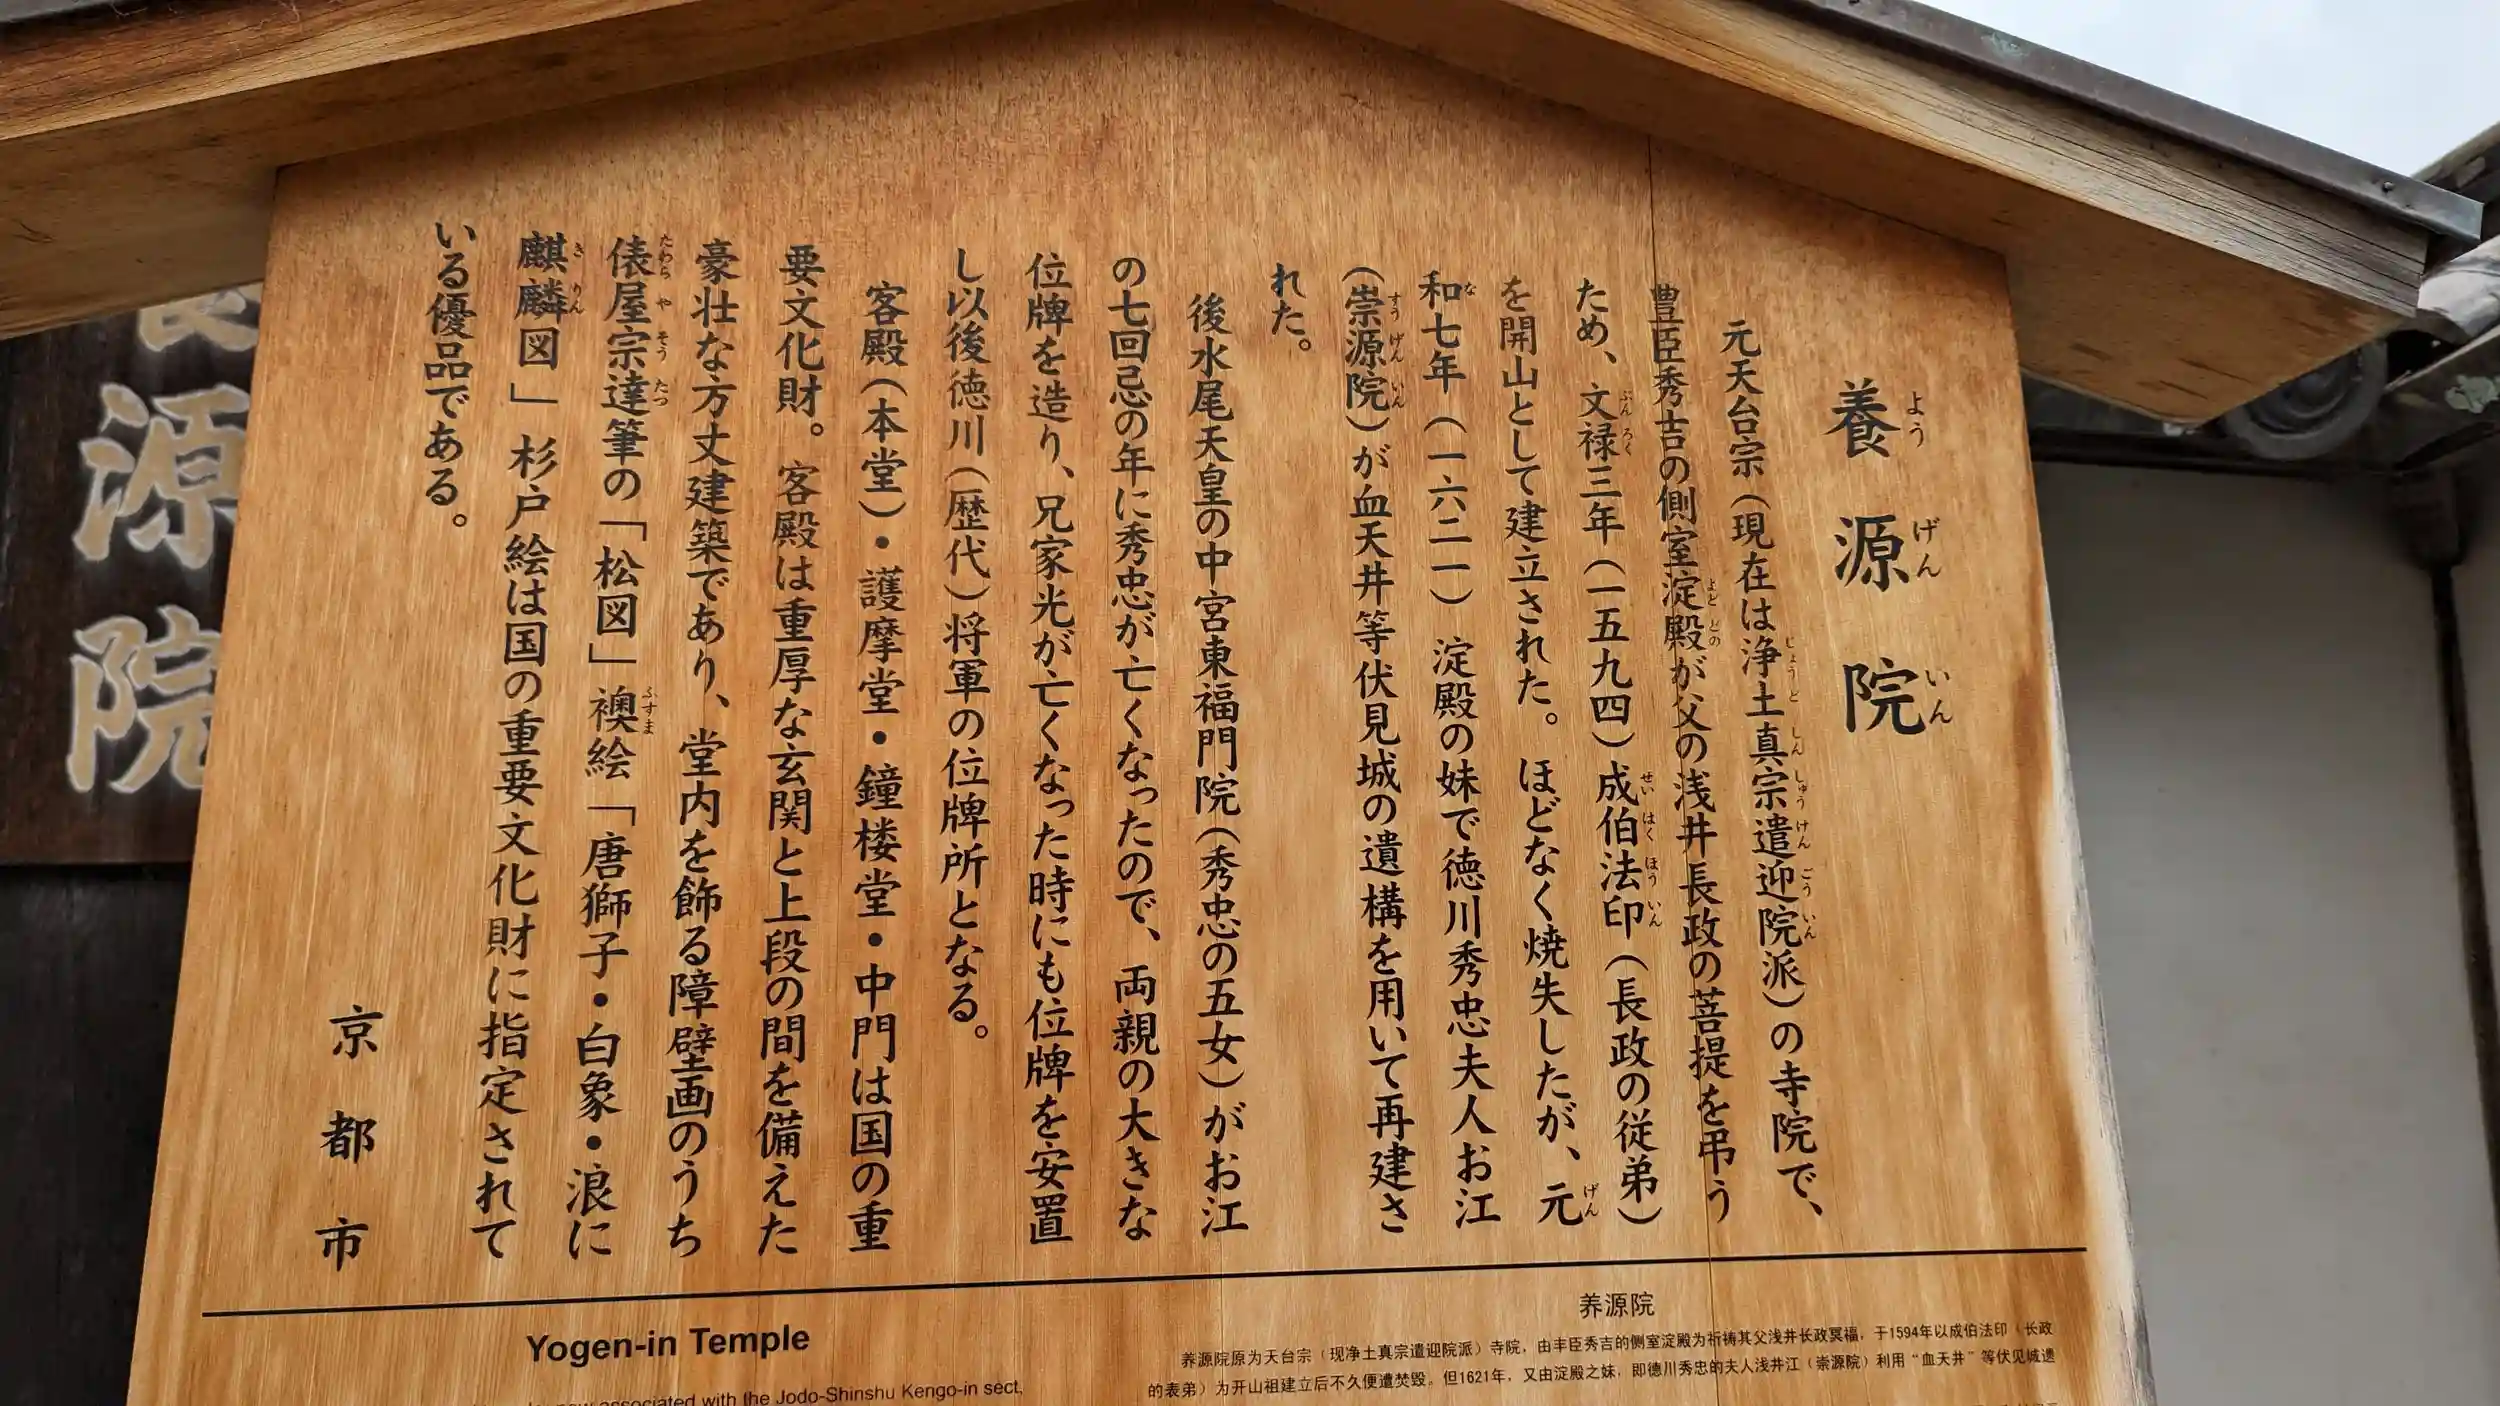 養源院
よう げん いん
元天台宗(現在は浄土真宗遣迎院派)の寺院で、
じょうど しん しゅう けん ごう いん
豊臣秀吉の側室淀殿が父の浅井長政の菩提を弔う
よど どの
ため、文禄三年(一五九四)成伯法印(長政の従弟)
ぶん ろく せい はく ほう いん
を開山として建立された。ほどなく焼失したが、元
げん
和七年(一六二一)淀殿の妹で徳川秀忠夫人お江
な
(崇源院)が血天井等伏見城の遺構を用いて再建さ
すう げん いん
れた。
後水尾天皇の中宮東福門院(秀忠の五女)がお江
の七回忌の年に秀忠が亡くなったので、両親の大きな
位牌を造り、兄家光が亡くなった時にも位牌を安置
し以後徳川(歴代)将軍の位牌所となる。
客殿(本堂)・護摩堂・鐘楼堂・中門は国の重
要文化財。客殿は重厚な玄関と上段の間を備えた
豪壮な方丈建築であり、堂内を飾る障壁画のうち
俵屋宗達筆の「松図」襖絵「唐獅子・白象・浪に
たわら や そう たつ ふすま
麒麟図」杉戸絵は国の重要文化財に指定されて
き りん
いる優品である。
京都市
源院
Yogen-in Temple
now associated with the Jodo-Shinshu Kengo-in sect,
养源院
养源院原为天台宗(现净土真宗遣迎院派)寺院，由丰臣秀吉的侧室淀殿为祈祷其父浅井长政冥福，于1594年以成伯法印(长政
的表弟)为开山祖建立后不久便遭焚毁。但1621年，又由淀殿之妹，即德川秀忠的夫人浅井江(崇源院)利用“血天井”等伏见城遗